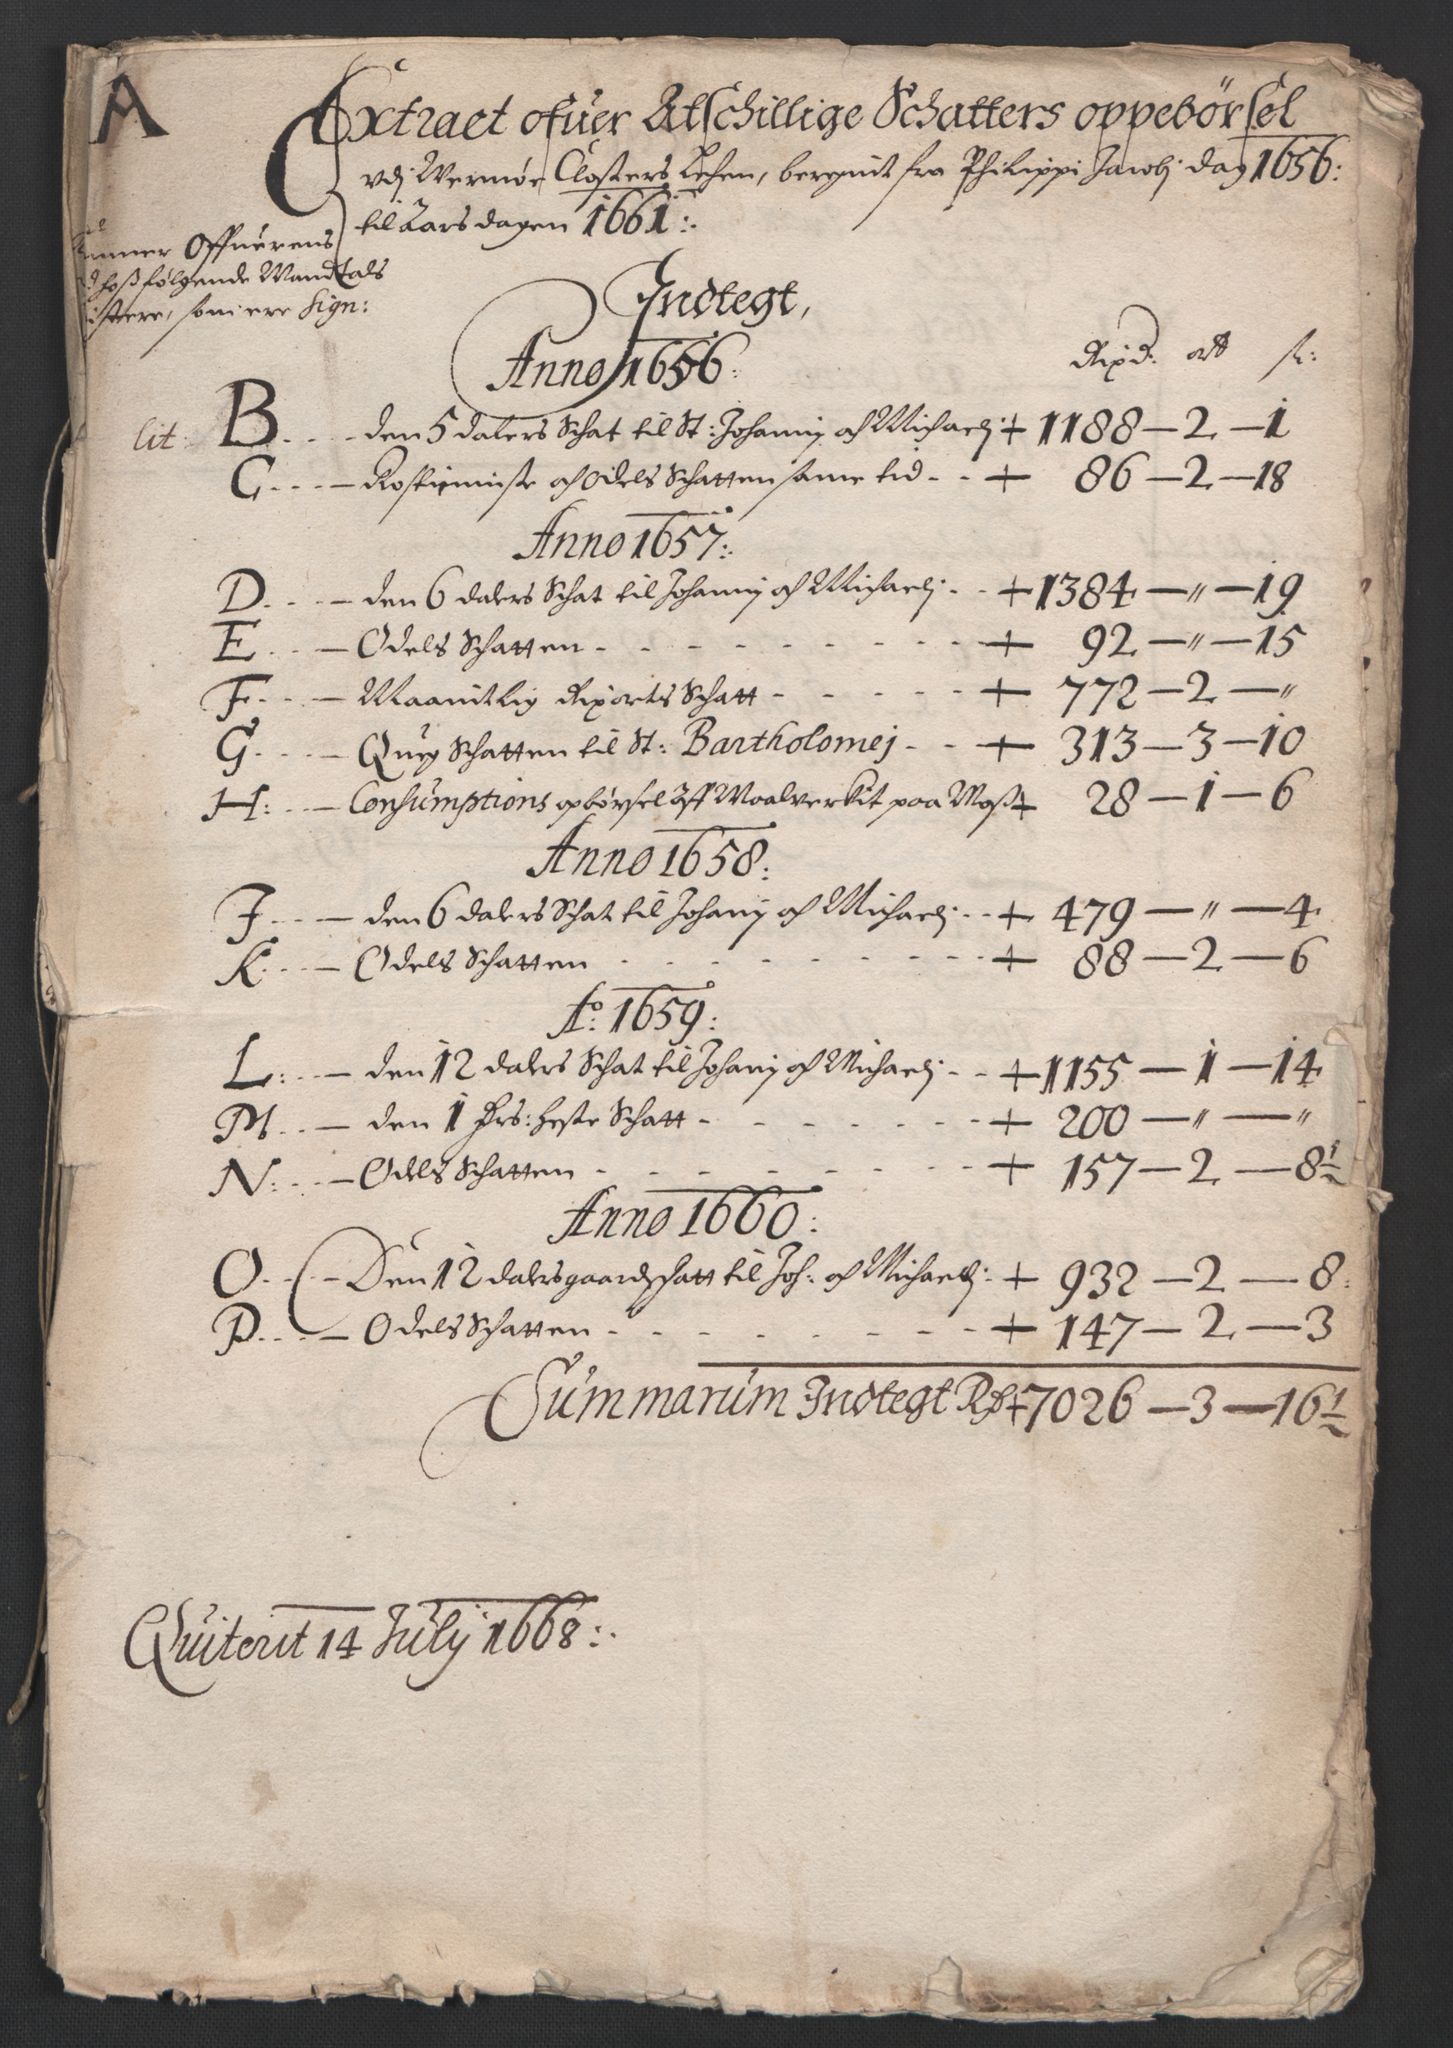 A
Extract ofuer Atschillige Schatters oppebörsel
vdj Wernøe Closters Lehen, beregnit fra Philippi Jacobj dag 1656:
til Aars dagen 1661:
Offuerens
hoß følgende Mandtals
som ere sign:
Indtegt,
Anno 1656: Rixd: ort ß:
lit: B. - - - den 5 dalers Schat til St: Johannij och Michaelj + 1188 - 2 - 1
C. - - - Rostieniste och Odels Schatten same tid - - + 86 - 2 - 18
Anno 1657:
D. - - - den 6 dalers Schat til Johannij och Michaelj - - + 1384 - " - 19
E. - - - Odels Schatten - - - + 92 - " - 15
F. - - - Maanitlig Rixorts Schatt - - - + 772 - 2 - "
G. - - - Queg Schatten til St: Bartholomej - - + 313 - 3 - 10
H: - - - Consumptions opbörsel aff Maalverkit paa Moß + 28 - 1 - 6
Anno 1658:
J. - - - den 6 dalers Schat til Johanij och Michaelj - - + 479 - " - 4
K. - - - Odels Schatten - - - + 88 - 2 - 6
Ao: 1659:
L: - - - den 12 dalers Schat til Johanij och Michaelj - - + 1155 - 1 - 14
M. - - - den 1 Heste Schatt - - - + 200 - " - "
N: - - - Odels Schatten - - - + 157 - 2 - 8½
Anno 1660:
O. - - - Den 12 dalers gaardschatt til Joh: och Michaelj: + 932 - 2 - 8:
P. - - - Odels Schatten - - - + 147 - 2 - 3
Summarum Indtegt Rd + 7026 - 3 - 16½
Quiterit 14 Julij 1668: